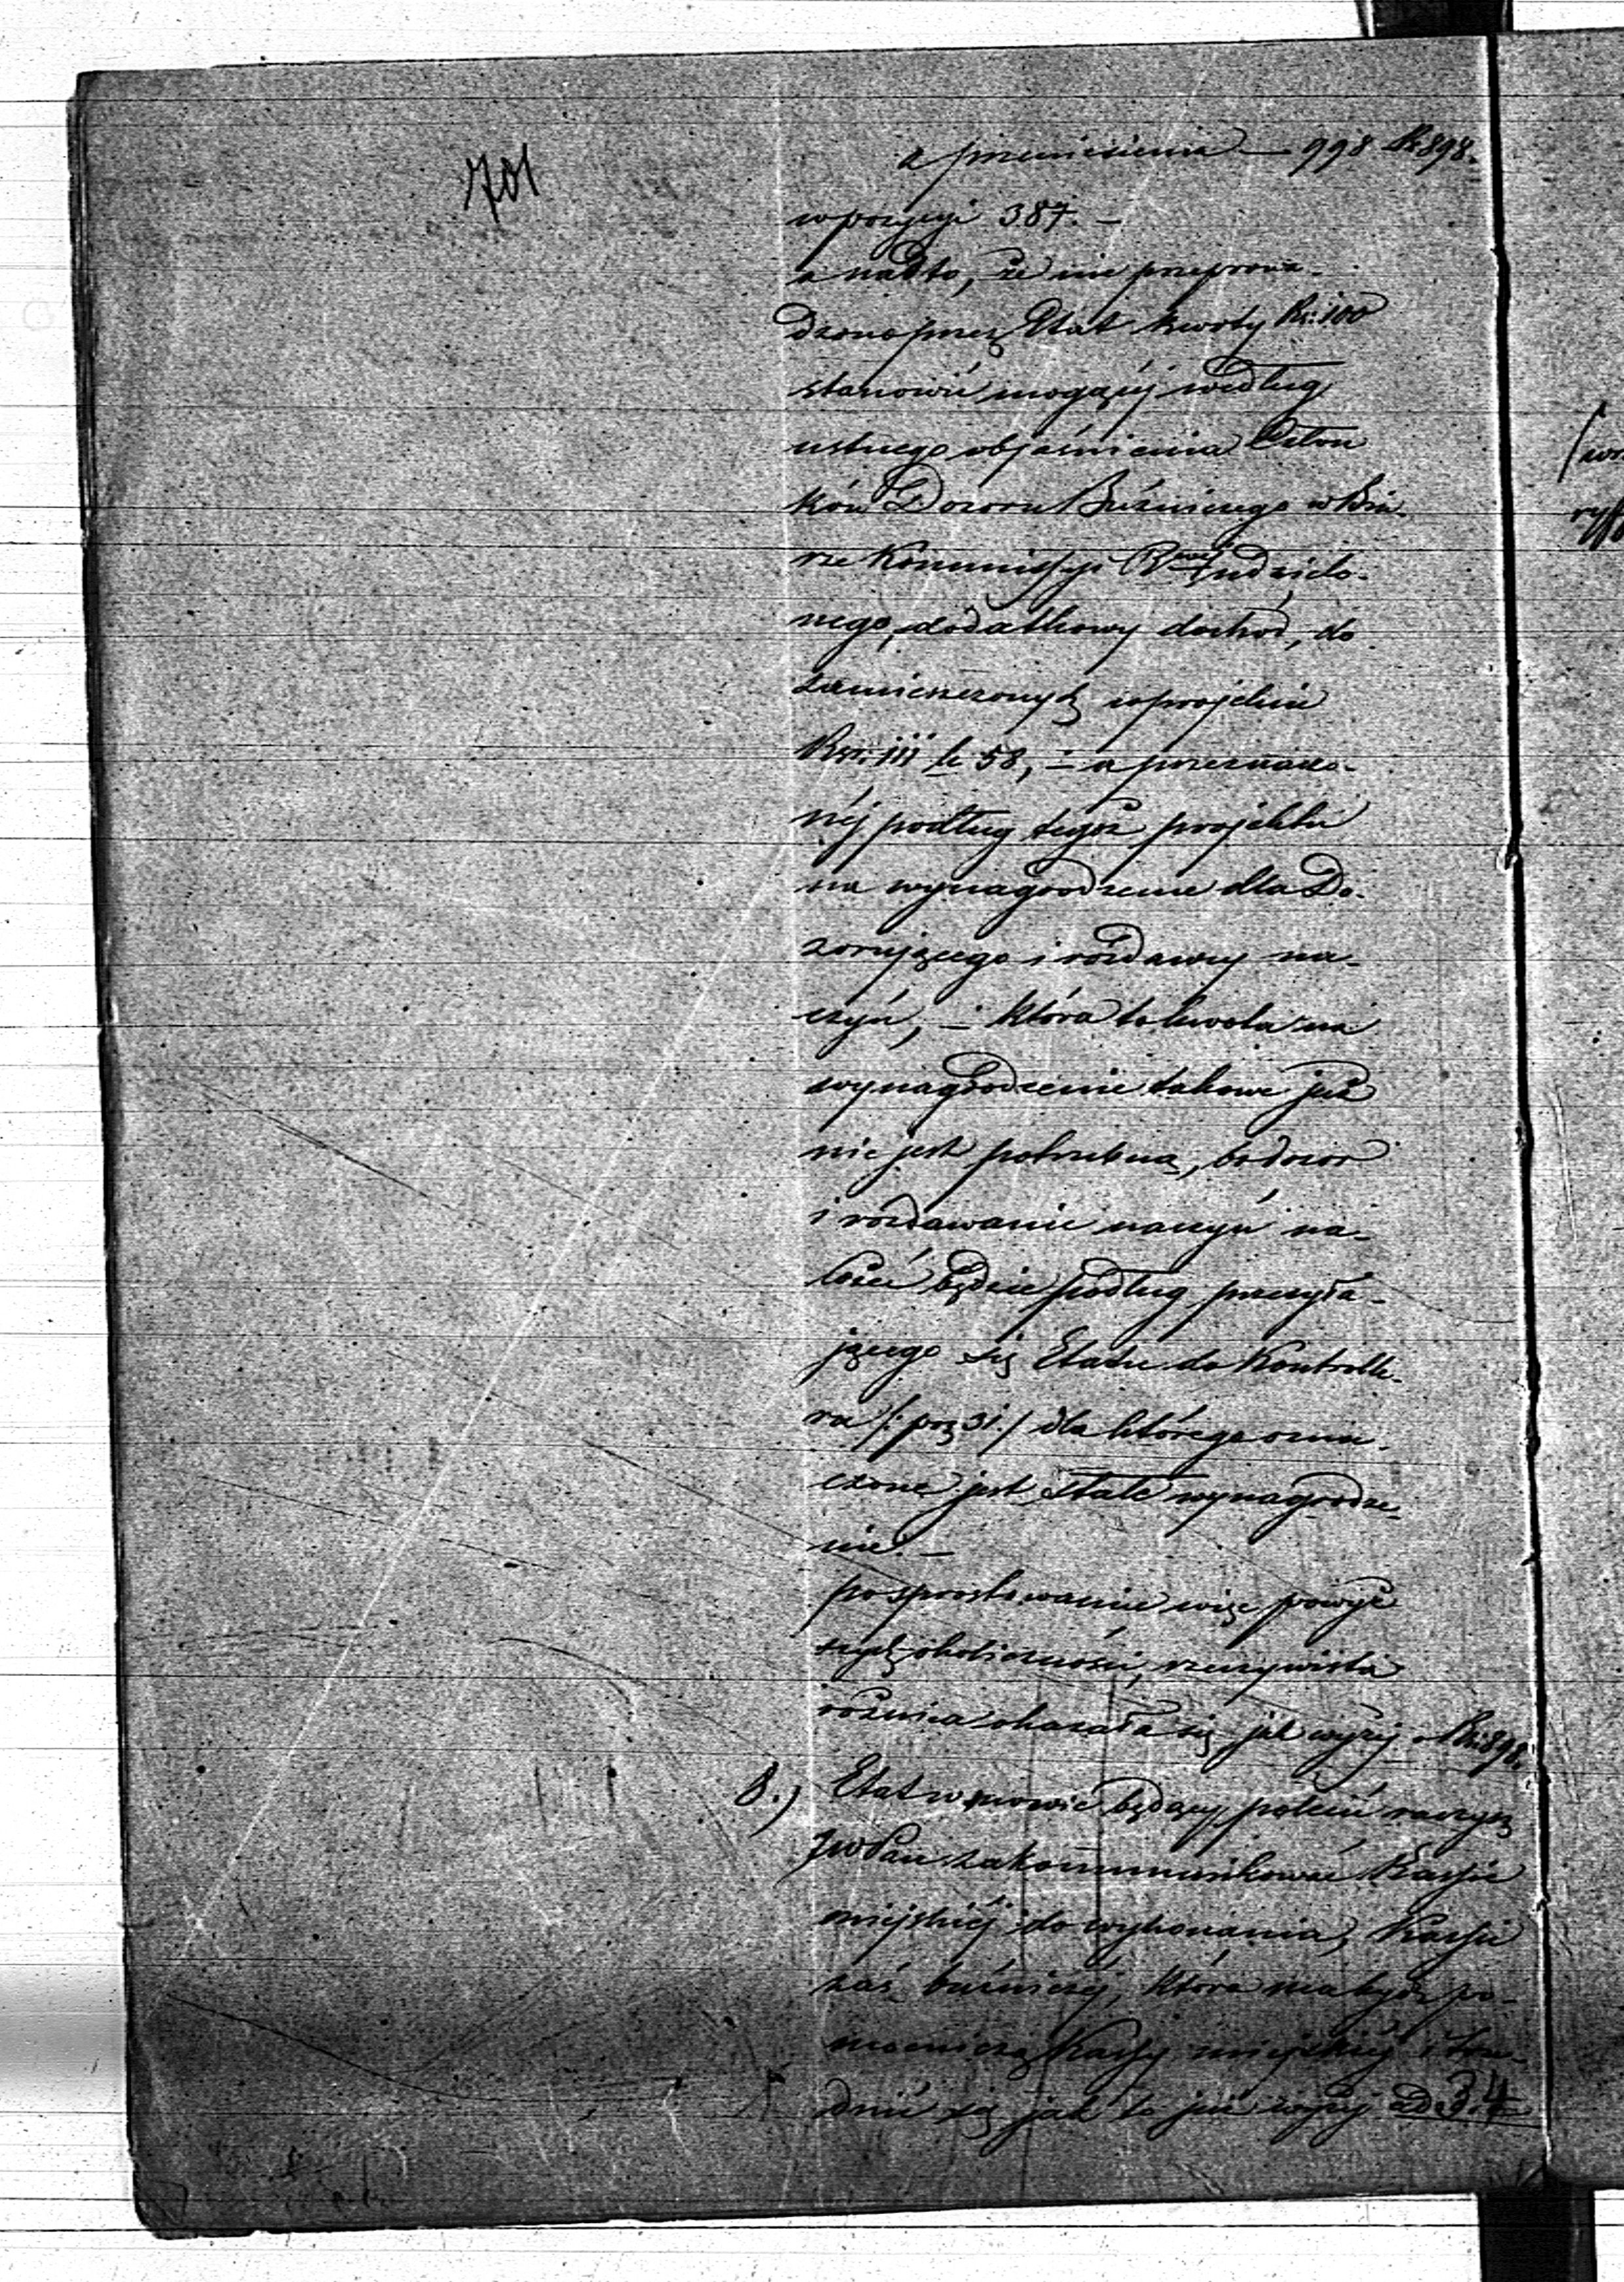 701
z przeniesienia — 998 Rs 898.
w pozycyi 387. —
a nadto, że nie przeprowa-
dzono przez Etat kwoty Rs: 100
stanowić mogącéj według
ustnego objaśnienia Człon
ków Dozoru Bóżniczego w Biu-
rze Kommissyi Rząd udzielo-
nego, dodatkowy dochód, do
zamieszczonych w projekcie
Rsr: 111 k 58, — a przeznaczo-
néj podług tegoż projektu
na wynagrodzenie dla Do-
zorującego i rozdawcy na-
czyń, — która to kwota na
wynagrodzenie takowe już
nie jest potrzebną, bo dozor
i rozdawanie naczyń na-
leżeć będzie podług przesyła-
jącego się Etatu do Kontrolle-
ra /: poz 31 :/ dla którego ozna-
czone jest stałe wynagrodze-
nie. —
po sprostowanie więc powyż
szych okoliczności, rzeczywista
różnica okazała się, jak wyżej Rs: 898.
8.) Etat w mowie będący polecić raczysz
JWPan zakommunikować Kassie
miejskiéj do wykonania, Kassie
zaś bóżniczéj, która ma być po-
mocniczą Kassy miejskiéj i tru-
dnić się jak to już wyżéj ad 3. 4